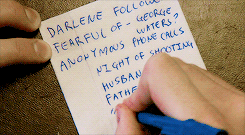 DARLENE FOLLOW
FEARFUL OF - GEORGE
WATERS?
ANONYMOUS PHONE CALLS
NIGHT OF SHOOTING
HUSBAN
FATHE